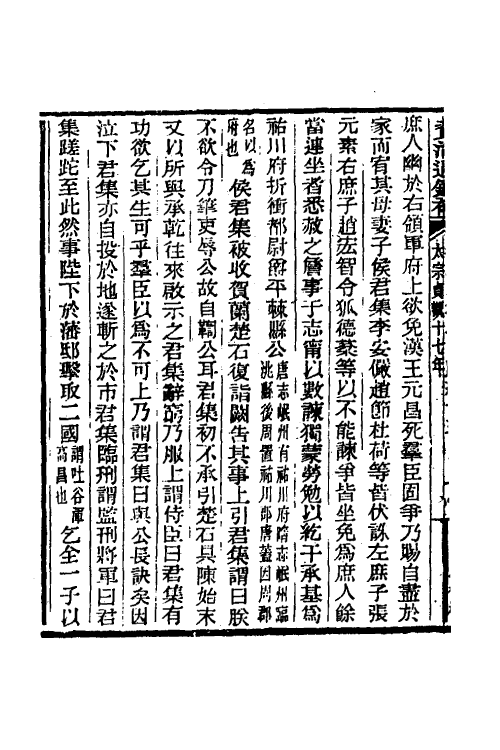 資治通鑑補 太宗貞觀十七年
庶人幽於右領軍府上欲免漢王元昌死羣臣固爭乃賜自盡於
家而宥其母妻子侯君集李安儼趙節杜荷等皆伏誅左庶子張
元素右庶子趙宏智令狐德棻等以不能諫爭皆坐免爲庶人餘
當連坐者悉赦之詹事于志甯以數諫獨蒙勞勉以紇干承基爲
祐川府折衝都尉爵平棘縣公唐志岷州有祐川府隋志岷州臨
洮縣後周置祐川郡唐蓋因周郡
名以爲
府也侯君集被收賀蘭楚石復詣闕告其事上引君集謂曰朕
不欲令刀筆吏辱公故自鞫公耳君集初不承引楚石具陳始末
又以所與承乾往來啟示之君集辭窮乃服上謂侍臣曰君集有
功欲乞其生可乎羣臣以爲不可上乃謂君集曰與公長訣矣因
泣下君集亦自投於地遂斬之於市君集臨刑謂監刑將軍曰君
集蹉跎至此然事陛下於藩邸擊取二國謂吐谷渾
高昌也乞全一子以